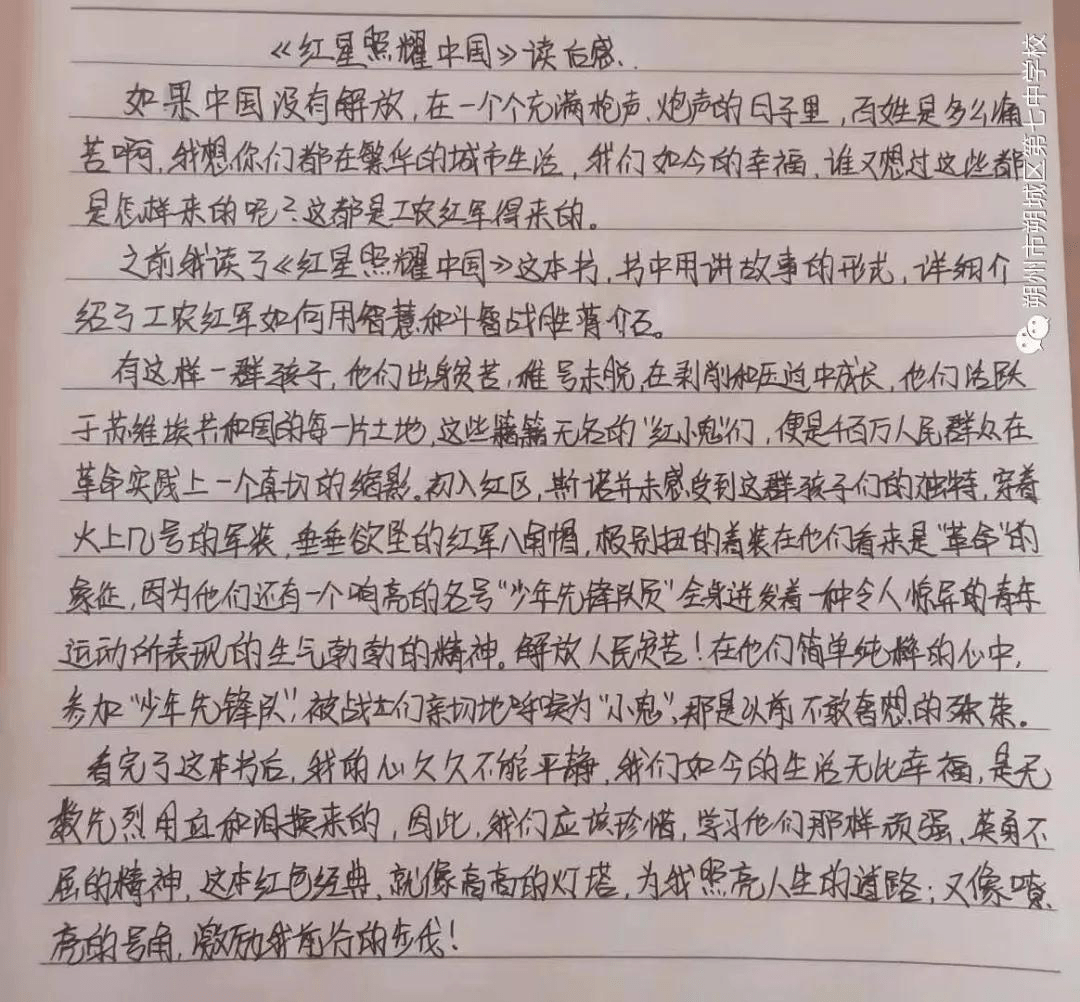 《红星照耀中国》读后感.
如果中国没有解放,在一个个充满枪声、炮声的日子里,百姓是多么痛
苦啊,我想你们都在繁华的城市生活,我们如今的幸福,谁又想过这些都
是怎样来的呢?这都是工农红军得来的。
之前我读了《红星照耀中国》这本书,书中用讲故事的形式,详细介
绍了工农红军如何用智慧和斗智战胜蒋介石。
有这样一群孩子,他们出身贫苦,稚号未脱,在剥削和压迫中成长,他们活跃
于苏维埃共和国的每一片土地,这些籍籍无名的“红小鬼”们,便是千百万人民群众在
革命实践上一个真切的缩影。初入红区,斯诺并未感受到这群孩子们的独特,穿着
大上几号的军装,垂垂欲坠的红军八角帽,极别扭的着装在他们看来是“革命”的
象征,因为他们还有一个响亮的名号“少年先锋队员”全身迸发着一种令人惊异的青年
运动所表现的生气勃勃的精神。解放人民贫苦!在他们简单纯粹的心中,
参加“少年先锋队”,被战士们亲切地呼唤为“小鬼”,那是以前不敢奢想的殊荣。
看完了这本书后,我的心久久不能平静,我们如今的生活无比幸福,是无
数先烈用血和泪换来的,因此,我们应该珍惜,学习他们那样顽强、英勇不
屈的精神,这本红色经典,就像高高的灯塔,为我照亮人生的道路;又像嘹
亮的号角,激励我前行的步伐!
朔州市朔城区第七中学校